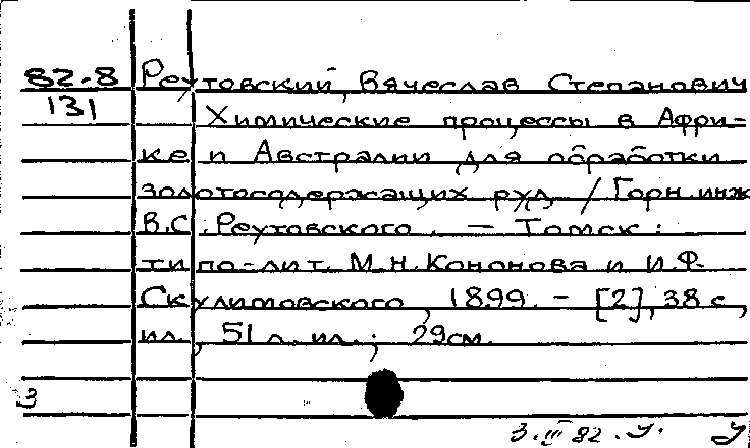 82-8 Реутовский, Вячеслав Степанович
131 Химические процессы в Афри-
ке и Австралии для обработки
золотосодержащих руд / Горн. инж
В.С. Реутовского. — Томск :
типо-лит. М.Н. Кононова и И.Ф.
Скулимовского, 1899. - [2], 38 с.,
ил., 51 л. ил.; 29см.
3
3.III 82.